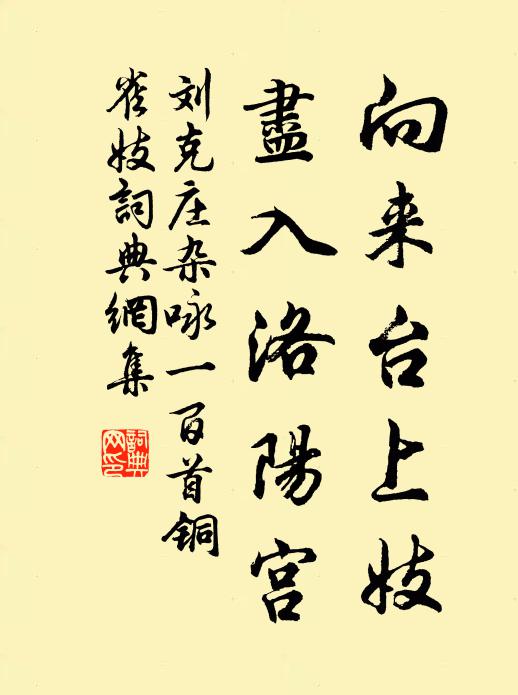 向来台上妓
盡入洛陽宫
刘克庄杂咏一百首铜
雀妓詞典網集
詞典
网印